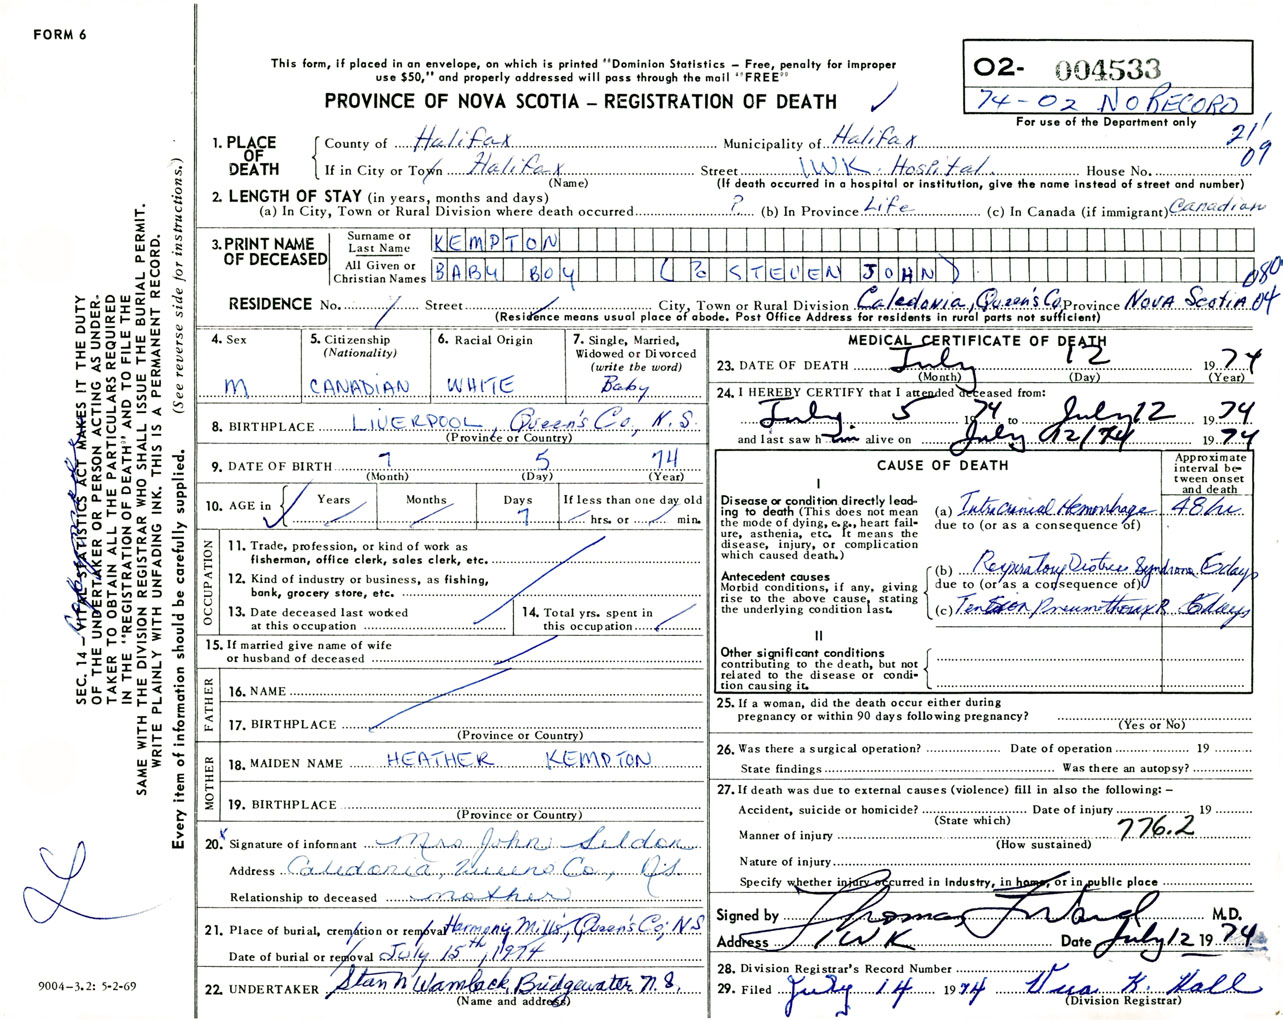 FORM 6
This form, if placed in an envelope, on which is printed "Dominion Statistics – Free, penalty for improper
use $50," and properly addressed will pass through the mail "FREE"
PROVINCE OF NOVA SCOTIA – REGISTRATION OF DEATH
02- 004533
74-02 NO RECORD
For use of the Department only
21'
09
1. PLACE OF DEATH
County of Halifax Municipality of Halifax
If in City or Town Halifax Street IWK. Hospital. House No.
(Name) (If death occurred in a hospital or institution, give the name instead of street and number)
2. LENGTH OF STAY (in years, months and days)
(a) In City, Town or Rural Division where death occurred ? (b) In Province Life (c) In Canada (if immigrant) Canadian
3. PRINT NAME OF DECEASED
Surname or Last Name KEMPTON
All Given or Christian Names BABY BOY ( STEVEN JOHN)
080
04
RESIDENCE No. / Street / City, Town or Rural Division Caledonia, Queen's Co. Province NOVA SCOTIA
(Residence means usual place of abode. Post Office Address for residents in rural parts not sufficient)
4. Sex
M
5. Citizenship
(Nationality)
CANADIAN
6. Racial Origin
WHITE
7. Single, Married,
Widowed or Divorced
(write the word)
Baby
8. BIRTHPLACE LIVERPOOL, Queen's Co., N.S.
(Province or Country)
9. DATE OF BIRTH 7 5 74
(Month) (Day) (Year)
10. AGE in Years Months Days If less than one day old
7 hrs. or min.
OCCUPATION
11. Trade, profession, or kind of work as
fisherman, office clerk, sales clerk, etc.
12. Kind of industry or business, as fishing,
bank, grocery store, etc.
13. Date deceased last worked
at this occupation
14. Total yrs. spent in
this occupation
15. If married give name of wife
or husband of deceased
FATHER
16. NAME
17. BIRTHPLACE
(Province or Country)
MOTHER
18. MAIDEN NAME HEATHER KEMPTON
19. BIRTHPLACE
(Province or Country)
20. Signature of informant Mrs John Seldon
Address Caledonia, Queens Co., N.S.
Relationship to deceased mother
21. Place of burial, cremation or removal Harmony Mills, Queen's Co; N.S
Date of burial or removal July 15th, 1974
22. UNDERTAKER Stan N Wamback, Bridgewater N.S.
(Name and address)
MEDICAL CERTIFICATE OF DEATH
23. DATE OF DEATH July 12 1974
(Month) (Day) (Year)
24. I HEREBY CERTIFY that I attended deceased from:
July. 5 1974 to July 12 1974
and last saw him alive on July 12/74 1974
CAUSE OF DEATH
Approximate
interval be-
tween onset
and death
I
Disease or condition directly lead-
ing to death (This does not mean
the mode of dying, e.g., heart fail-
ure, asthenia, etc. It means the
disease, injury, or complication
which caused death.)
(a) Intracranial Hemorrhage 48 hr.
due to (or as a consequence of)
Antecedent causes
Morbid conditions, if any, giving
rise to the above cause, stating
the underlying condition last.
(b) Respiratory Distress Syndrome 6 days
due to (or as a consequence of)
(c) Tension Pneumothorax R 6 days
II
Other significant conditions
contributing to the death, but not
related to the disease or condi-
tion causing it.
25. If a woman, did the death occur either during
pregnancy or within 90 days following pregnancy?
(Yes or No)
26. Was there a surgical operation? Date of operation 19
State findings Was there an autopsy?
27. If death was due to external causes (violence) fill in also the following: –
Accident, suicide or homicide? Date of injury 19
(State which)
776.2
Manner of injury
(How sustained)
Nature of injury
Specify whether injury occurred in Industry, in home, or in public place
Signed by Thomas M.D.
Address IWK Date July 12 1974
28. Division Registrar's Record Number
29. Filed July 14 1974 K. Hall
(Division Registrar)
SEC. 14 – VITAL STATISTICS ACT MAKES IT THE DUTY
OF THE UNDERTAKER OR PERSON ACTING AS UNDER-
TAKER TO OBTAIN ALL THE PARTICULARS REQUIRED
IN THE "REGISTRATION OF DEATH" AND TO FILE THE
SAME WITH THE DIVISION REGISTRAR WHO SHALL ISSUE THE BURIAL PERMIT.
WRITE PLAINLY WITH UNFADING INK. THIS IS A PERMANENT RECORD.
Every item of information should be carefully supplied. (See reverse side for instructions.)
9004-3.2: 5-2-69